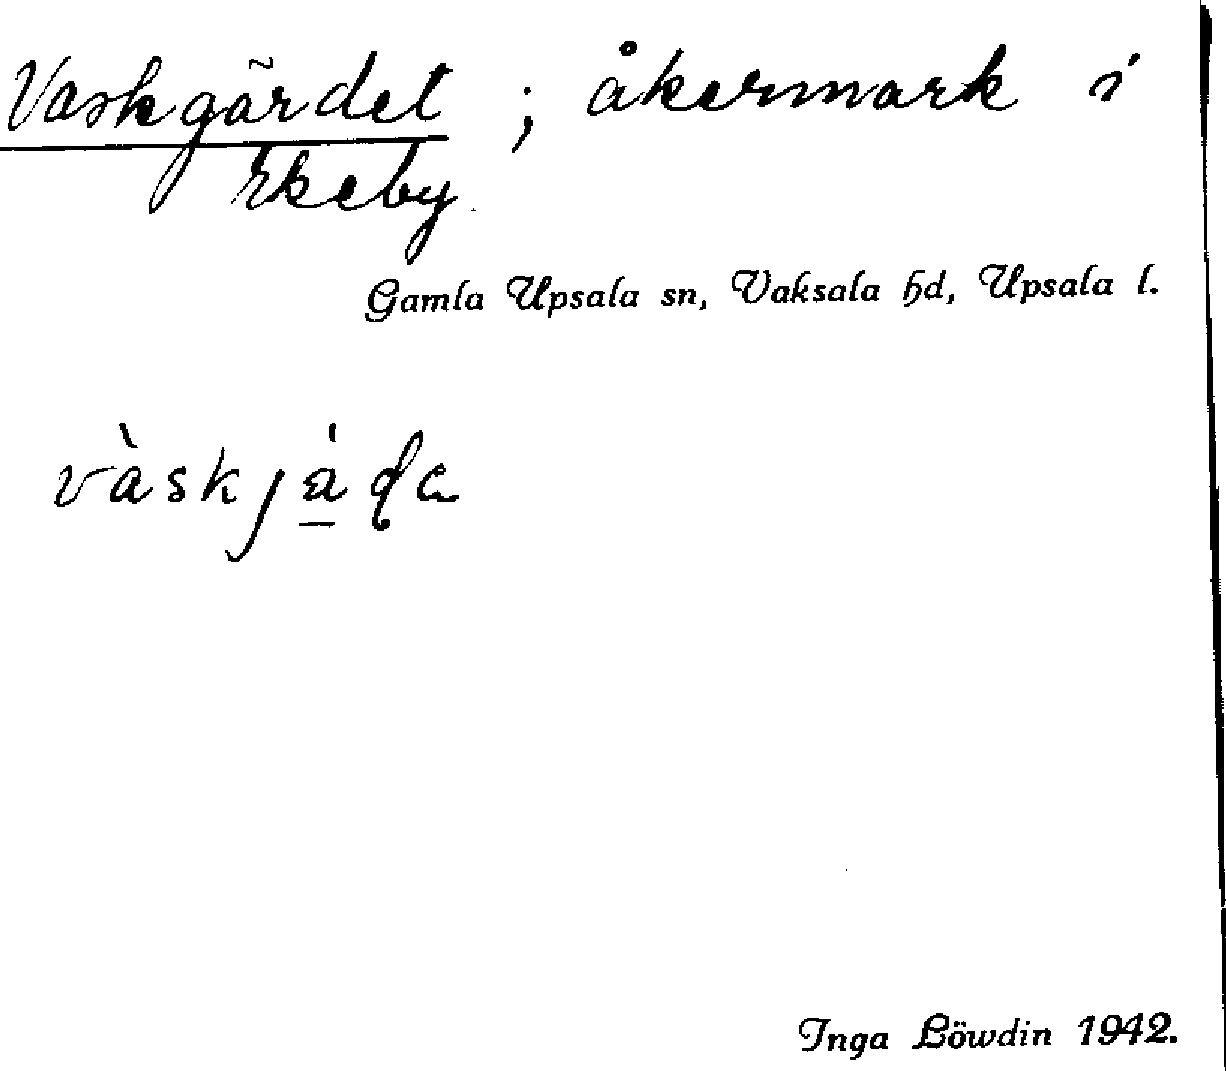 Vaskgärdet ; åkermark i
Ekeby.
Gamla Upsala sn, Vaksala hd, Upsala l.
Inga Löwdin 1942.